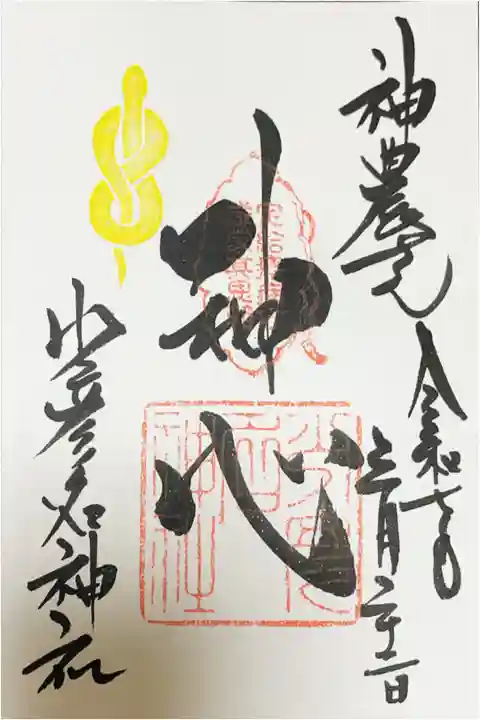 神農さん
令和七年
三月二十二日
神心
少彦名神社